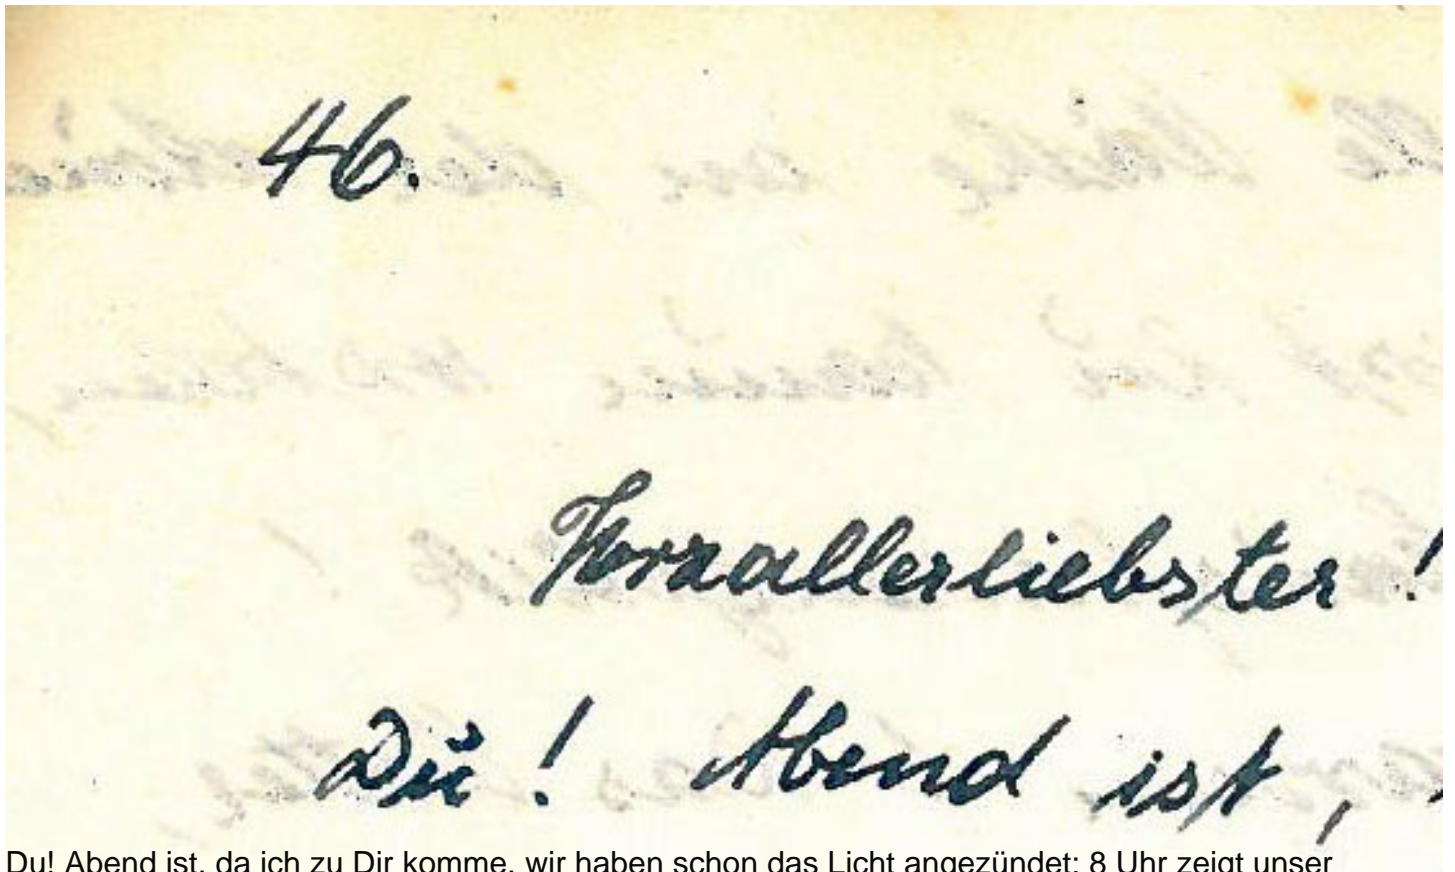 46.
Herzallerliebster!
Du! Abend ist,
Du! Abend ist, da ich zu Dir komme, wir haben schon das Licht angezündet; 8 Uhr zeigt unser